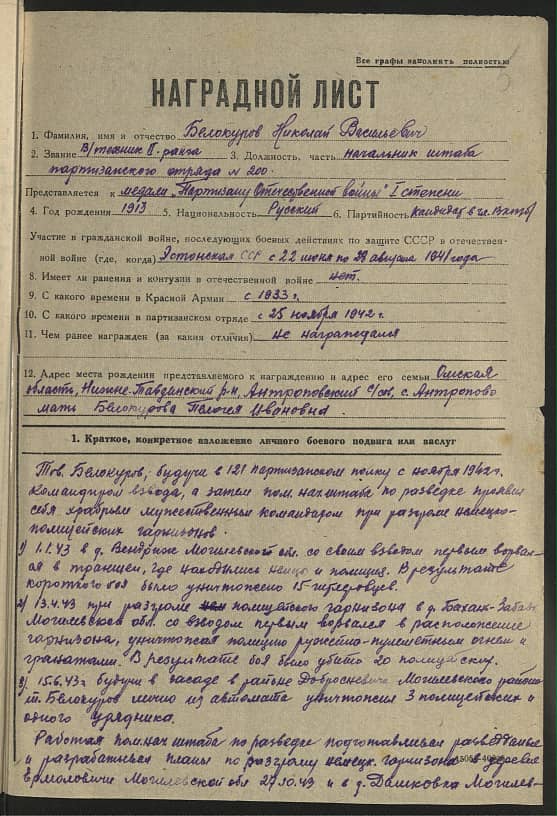 Все графы заполнять полностью
НАГРАДНОЙ ЛИСТ
1. Фамилия, имя и отчество Белокуров Николай Васильевич
2. Звание В/техник II-ранга 3. Должность, часть начальник штаба
партизанского отряда № 200.
Представляется к медали "Партизану Отечественной войны" I степени
4. Год рождения 1913 5. Национальность Русский 6. Партийность кандидат в чл. ВКП(б)
Участие в гражданской войне, последующих боевых действиях по защите СССР в отечествен-
ной войне (где, когда) Эстонская ССР с 22 июня по 28 августа 1941 года
8. Имеет ли ранения и контузии в отечественной войне нет.
9. С какого времени в Красной Армии с 1933 г.
10. С какого времени в партизанском отряде с 25 ноября 1942 г.
11. Чем ранее награжден (за какия отличия) не награждался
12. Адрес места рождения представляемого к награждению и адрес его семьи Омская
область, Нижне-Тавдинский р-н, Антроповский с/сов, с. Антропово
мать Белокурова Пелогея Ивановна.
1. Краткое, конкретное изложение личного боевого подвига или заслуг
Тов. Белокуров, будучи в 121 партизанском полку с ноября 1942г.
командиром взвода, а затем пом. нах. штаба по разведке проявил
себя храбрым мужественным командиром при разгроме немецко-
полицейских гарнизонов.
1) 1.1.43 в д. Вендриж Могилевской обл. со своим взводом первым ворвал-
ся в траншеи, где находились немцы и полиция. В результате
короткого боя было уничтожено 15 гитлеровцев.
2) 13.4.43 при разгроме полицейского гарнизона в д.
Могилевской обл. со взводом первым ворвался в расположение
гарнизона, уничтожая полицию ружейно-пулеметным огнем и
гранатами. В результате боя было убито 20 полицейских.
3) 15.6.43г будучи в засаде в районе Добросневичи Могилевского района
т. Белокуров лично из автомата уничтожил 3 полицейских и
одного урядника.
Работая пом. нач штаба по разведке подготавливал разведданные
и разрабатывал планы по разгрому немецк. гарнизона в деревне
Ермоловичи Могилевской обл 27.10.43 и в д. Дашковка Могилев-